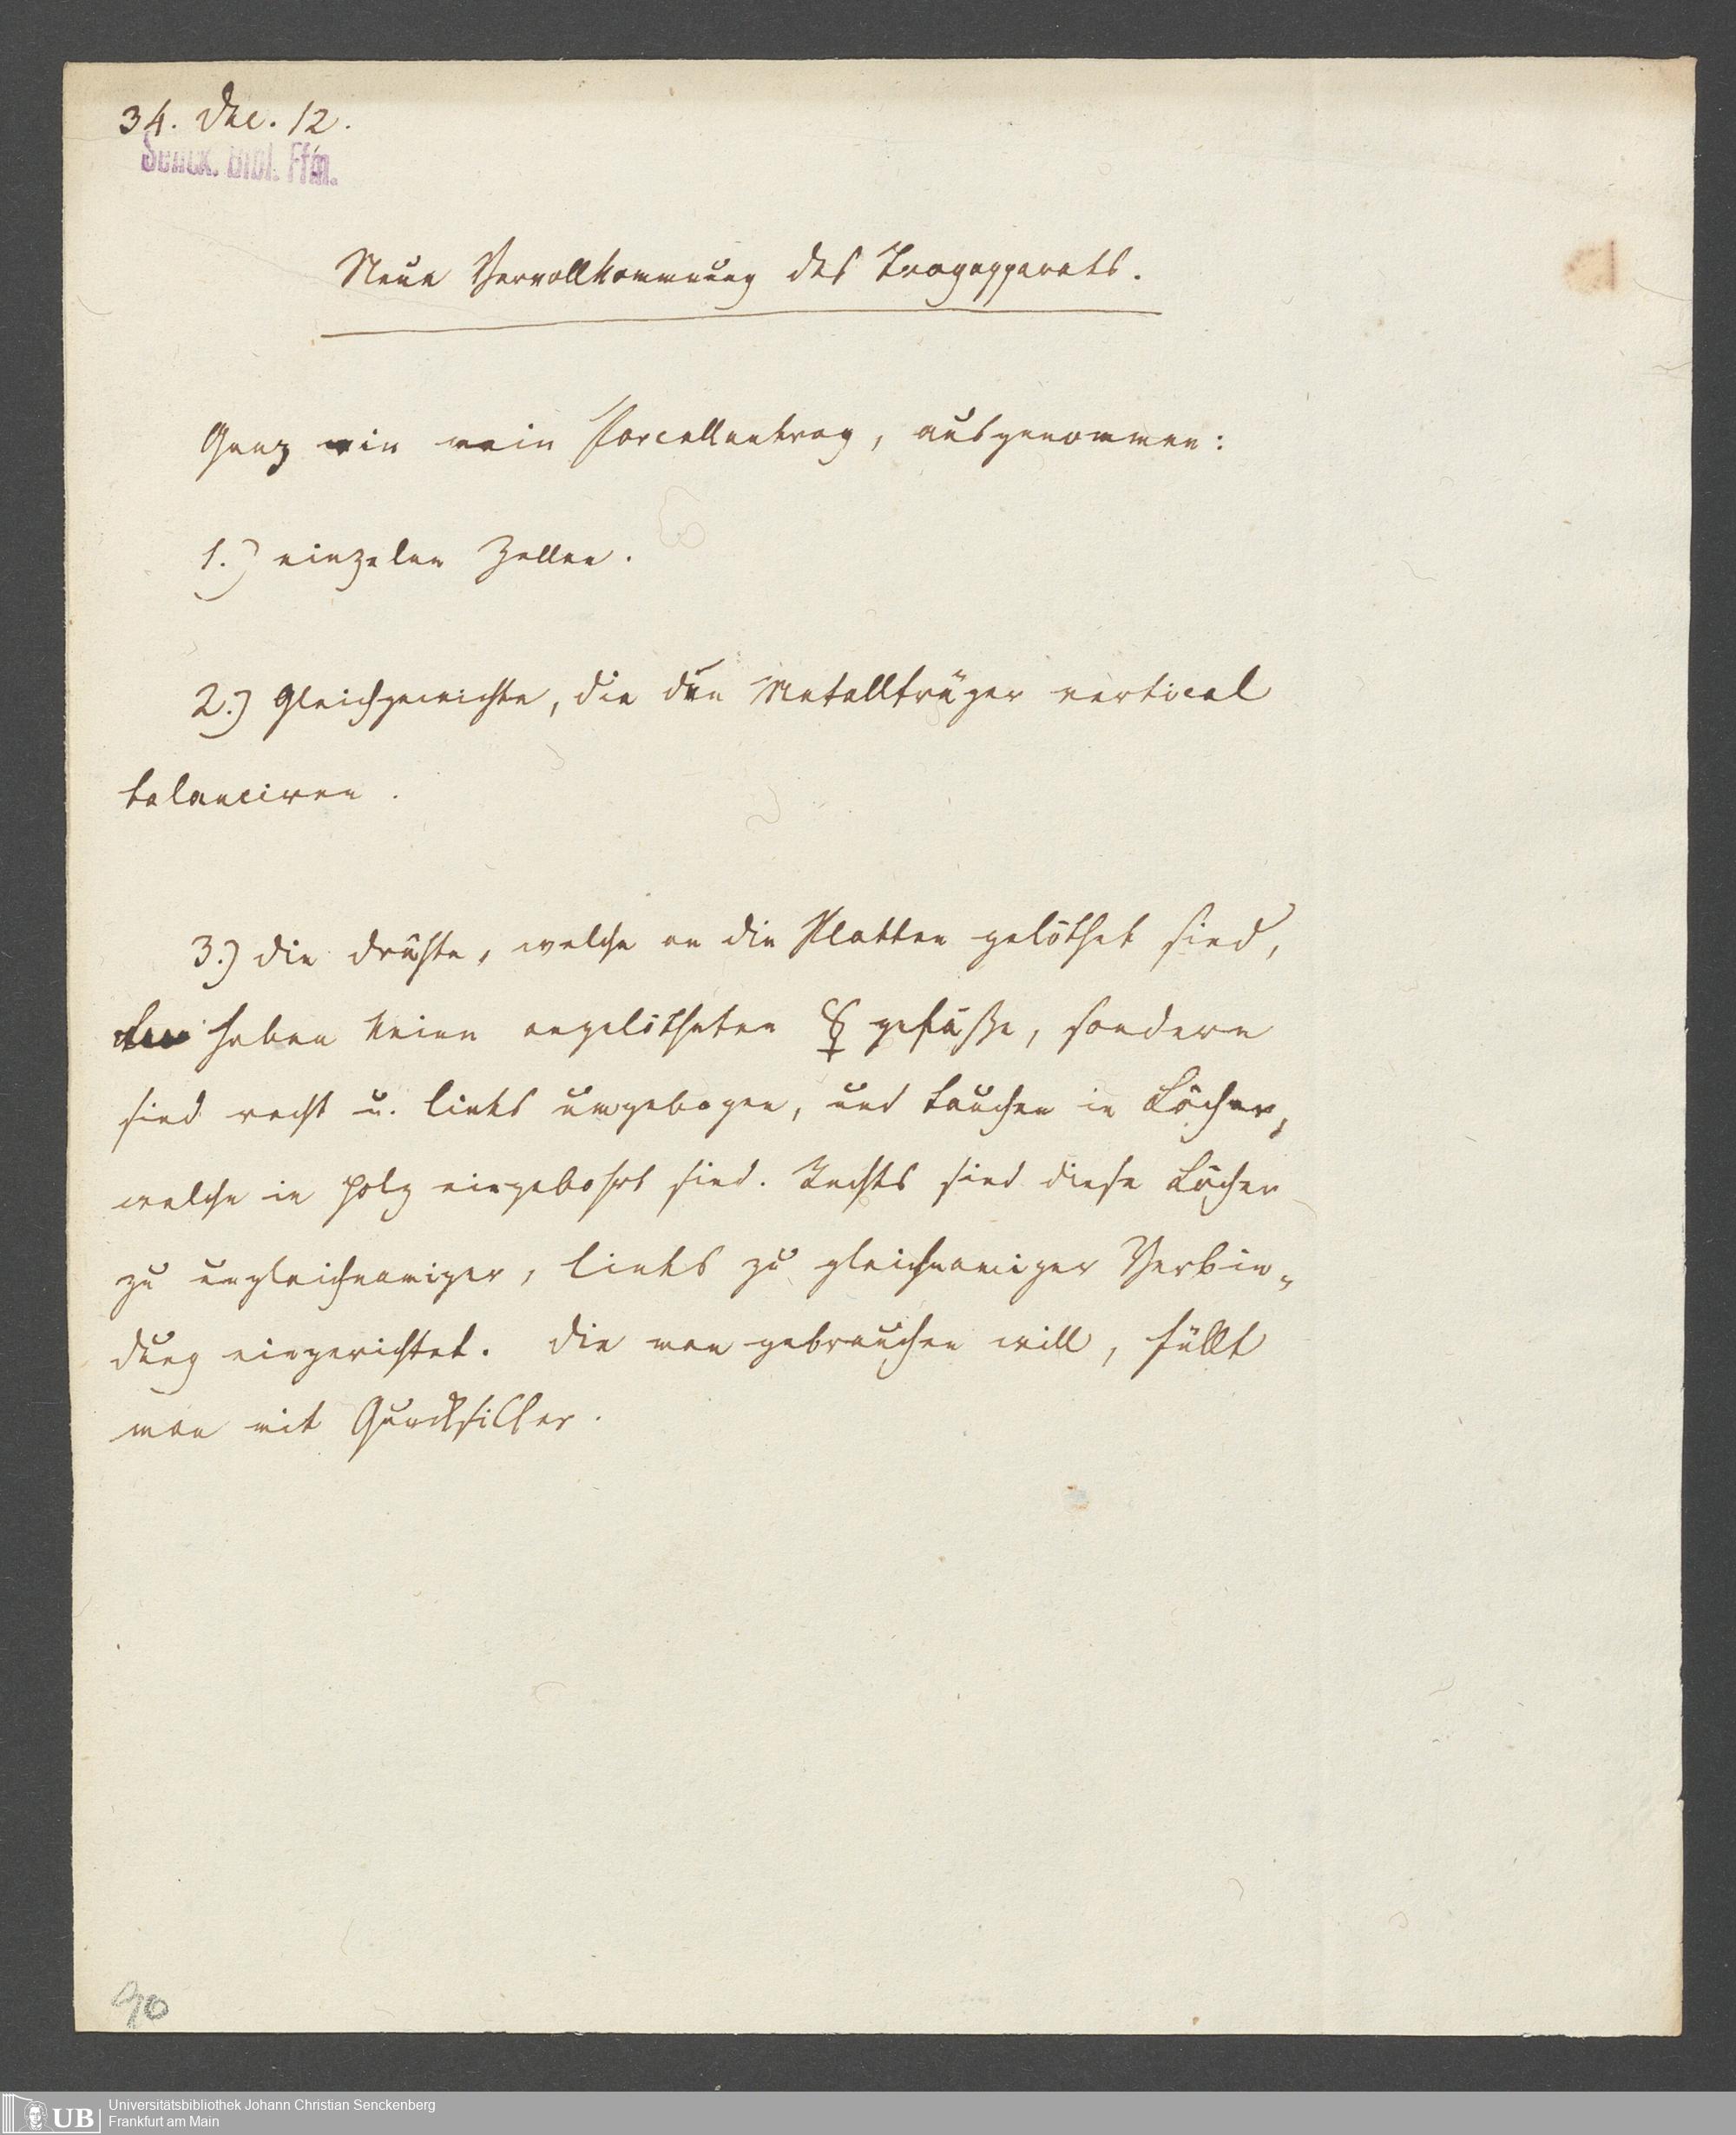 34. Dec. 12.
Senck. Bibl. Ffm.
Neue Vervollkommnung des Trogapparats.
Ganz wie mein Porcellantrog, ausgenommen:
1.) einzelne Zellen.
2.) Gleichgewichte, die den Metallträger vertical
balanciren.
3.) die Drähte, welche an die Platten gelöthet sind,
haben keine angelötheten ☿ gefäße, sondern
sind recht u. links umgebogen, und tauchen in Löcher,
welche in Holz eingebohrt sind. Rechts sind diese Löcher
zu ungleichnamiger, links zu gleichnamiger Verbin-
dung eingerichtet. Die man gebrauchen will, füllt
man mit Quecksilber.
90
UB
Universitätsbibliothek Johann Christian Senckenberg
Frankfurt am Main